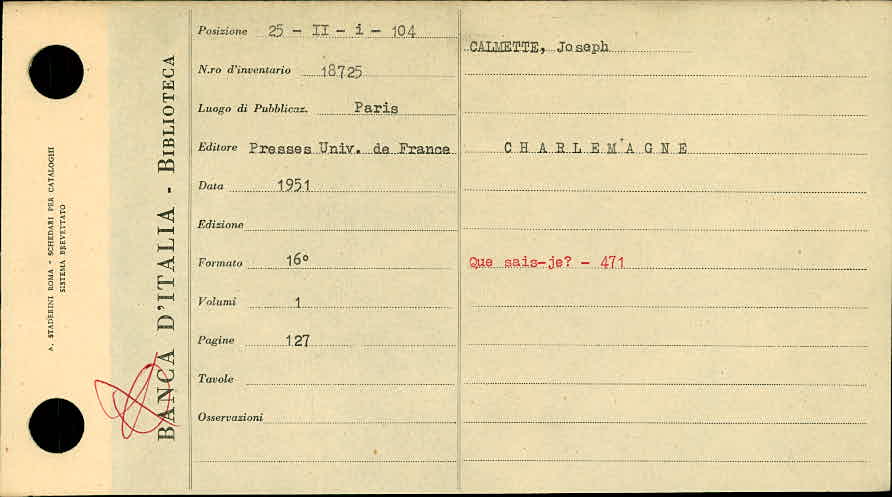 A. STADERINI ROMA - SCHEDARI PER CATALOGHI
SISTEMA BREVETTATO
BANCA D'ITALIA - BIBLIOTECA
Posizione 25 - II - i - 104
N.ro d'inventario 18725
Luogo di Pubblicaz. Paris
Editore Presses Univ. de France
Data 1951
Edizione
Formato 16º
Volumi 1
Pagine 127
Tavole
Osservazioni
CALMETTE, Joseph
C H A R L E M A G N E
Que sais-je? - 471